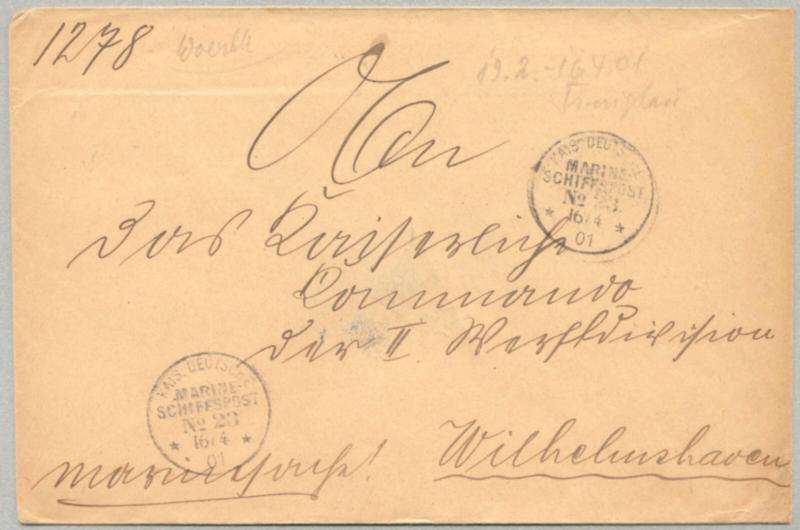 1278
19.2.-16.4.01
Tsingtau
An
KAIS. DEUTSCHE
MARINE-
SCHIFFSPOST
No 23.
* 16/4 *
01
das Kaiserliche
Kommando
der II Werftdivision
KAIS. DEUTSCHE
MARINE-
SCHIFFSPOST
No 23
* 16/4 *
01
Marinesache!
Wilhelmshaven